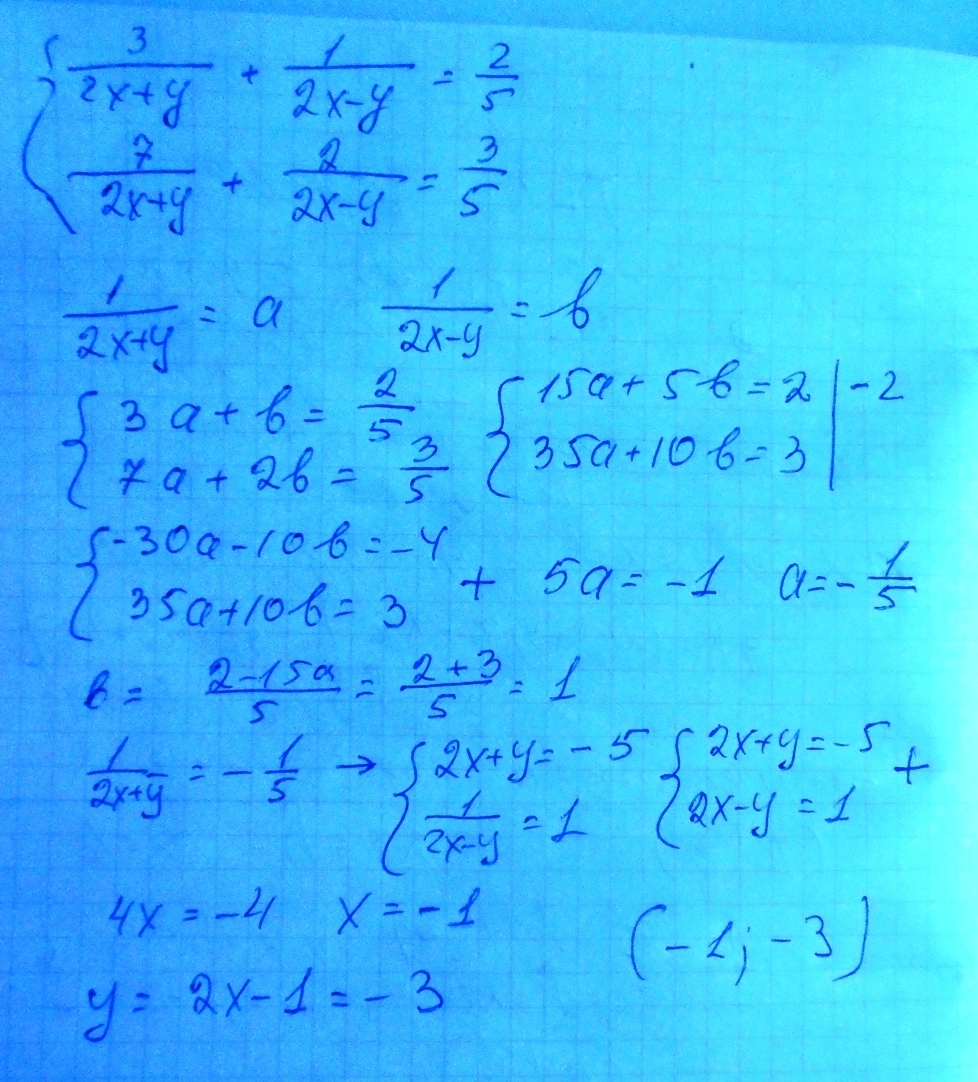 { 3/(2x+y) + 1/(2x-y) = 2/5
7/(2x+y) + 2/(2x-y) = 3/5
1/(2x+y) = a 1/(2x-y) = b
{ 3a + b = 2/5 { 15a + 5b = 2 | -2
7a + 2b = 3/5 35a + 10b = 3
{ -30a - 10b = -4
35a + 10b = 3 + 5a = -1 a = - 1/5
b = (2-15a)/5 = (2+3)/5 = 1
1/(2x+y) = - 1/5 → { 2x+y = -5 { 2x+y = -5 +
1/(2x-y) = 1 2x-y = 1
4x = -4 x = -1 (-1; -3)
y = 2x - 1 = -3